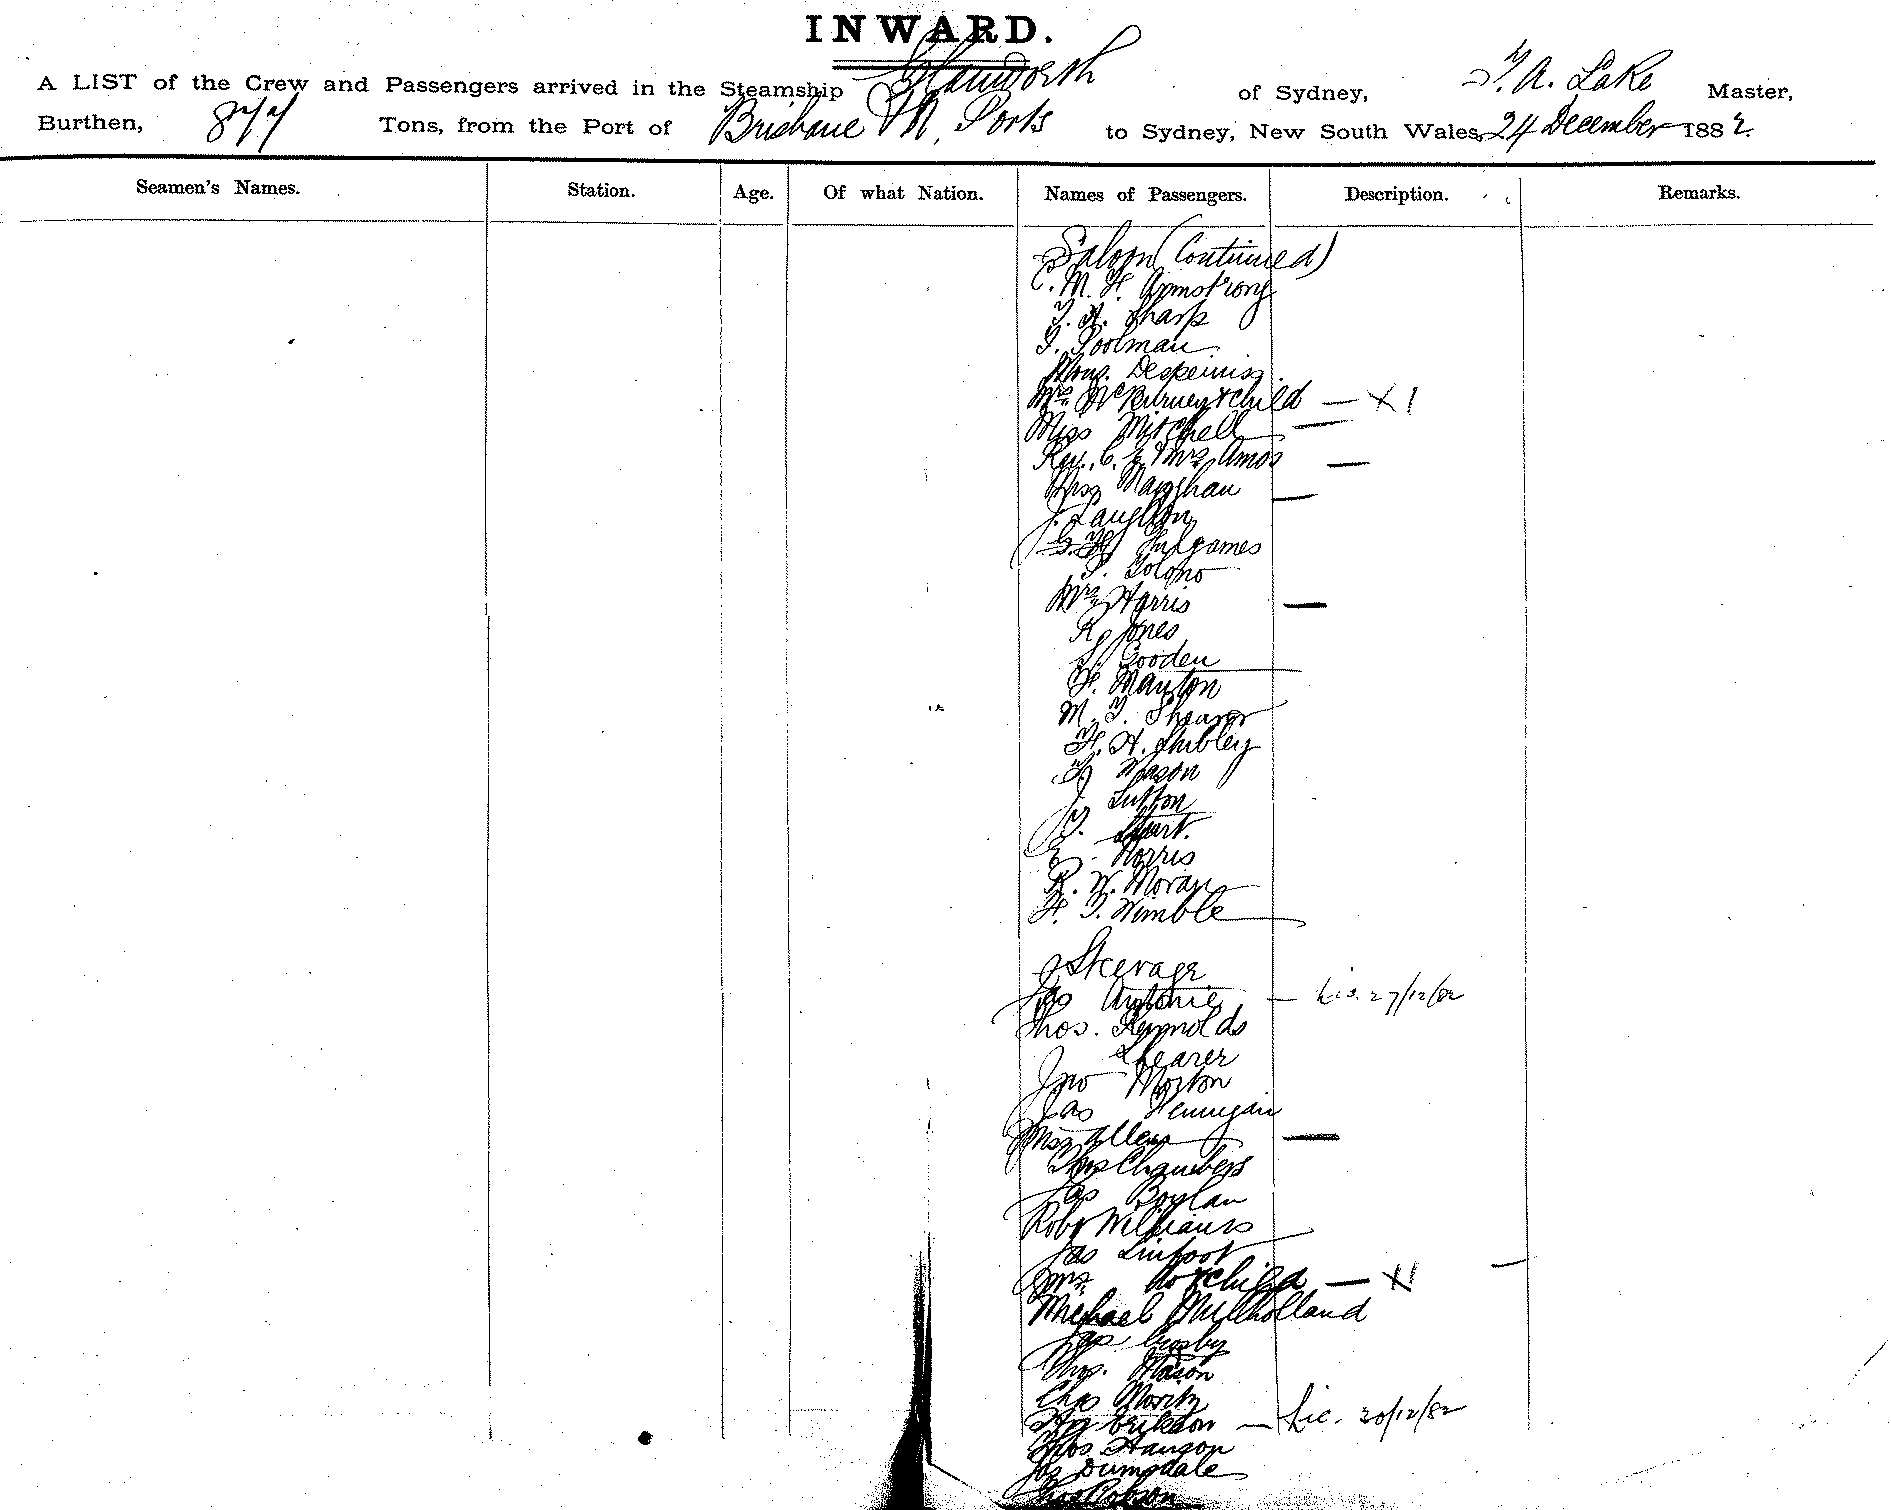 INWARD.
A LIST of the Crew and Passengers arrived in the Steamship Glanworth of Sydney, T. A. Lake Master,
Burthen, 877 Tons, from the Port of Brisbane & N. Ports to Sydney, New South Wales, 24 December 1882.
Seamen's Names. Station. Age. Of what Nation. Names of Passengers. Description. Remarks.
Saloon (Continued)
C. M. H. Armstrong
Sharp
Poolman
Mons.
Mrs & child — X 1
Miss Mitchell —
Rev. & Mrs Amos —
Miss —
J. Laughton
Mrs Harris —
R. Jones
Gooden
Manton
M. T. Shearer
F. A.
Mason
J. Sutton
Stuart.
E. Norris
R. W. Moran
F. T. Wimble
Steerage
Jas — Lic. 27/12/82
Thos. Reynolds
Shearer
Jno Morton
Jas Hennigan
Allen —
Chambers
Jas Boylan
Robt Williams
Jas Linfoot
Mrs & child — X 1
Michael Mullholland
Jas Crosby
Mason
Chas Moritz
Erikson — Lic. 20/12/82
Thos Hanson
Jas Dumsdale
Robson